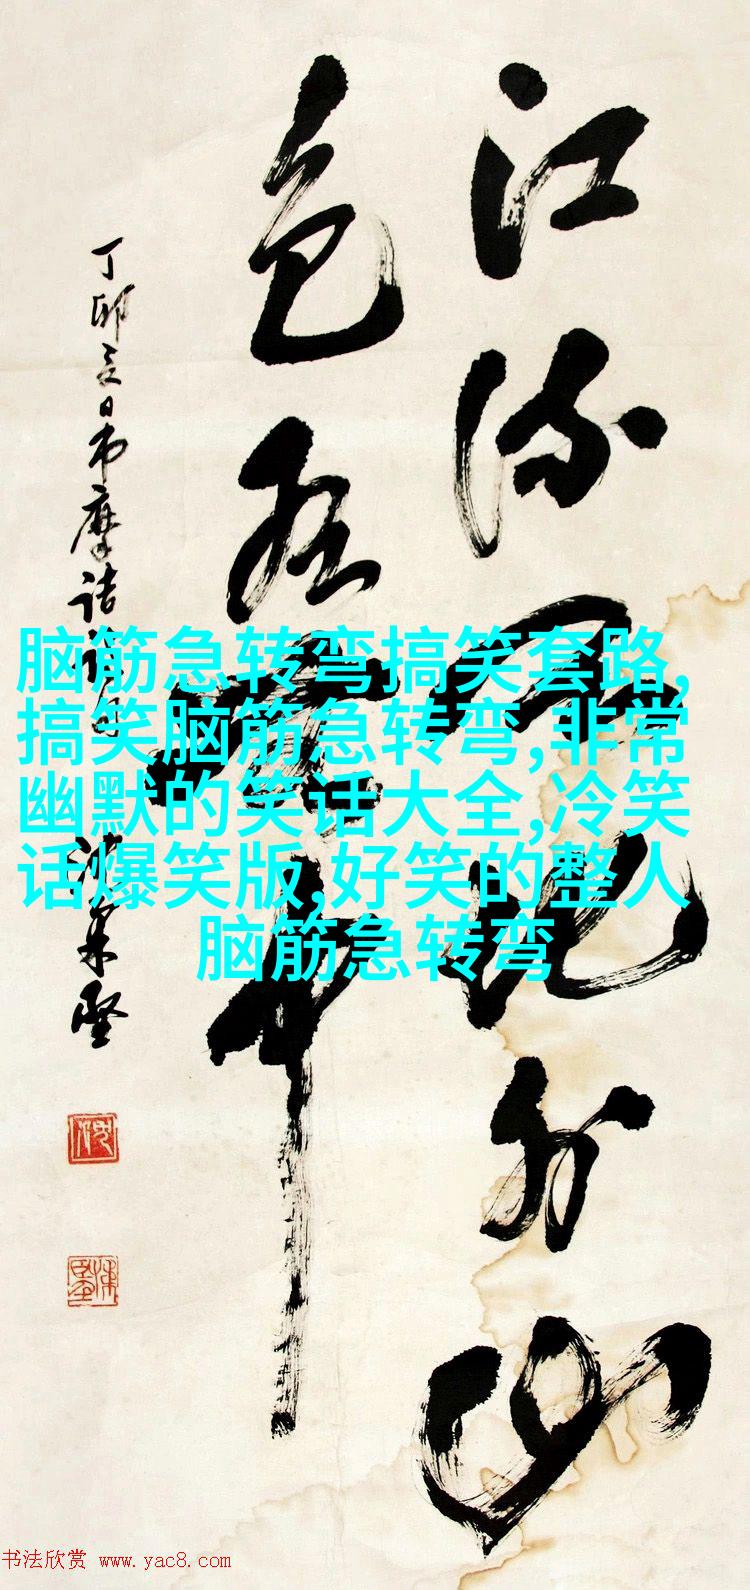 江流天地外山
色有无中
丁卯玄日书摩诘诗句
沈荣坚
脑筋急转弯搞笑套路,
搞笑脑筋急转弯,非常
幽默的笑话大全,冷笑
话爆笑版,好笑的整人
脑筋急转弯
书法欣赏 www.yac8.com